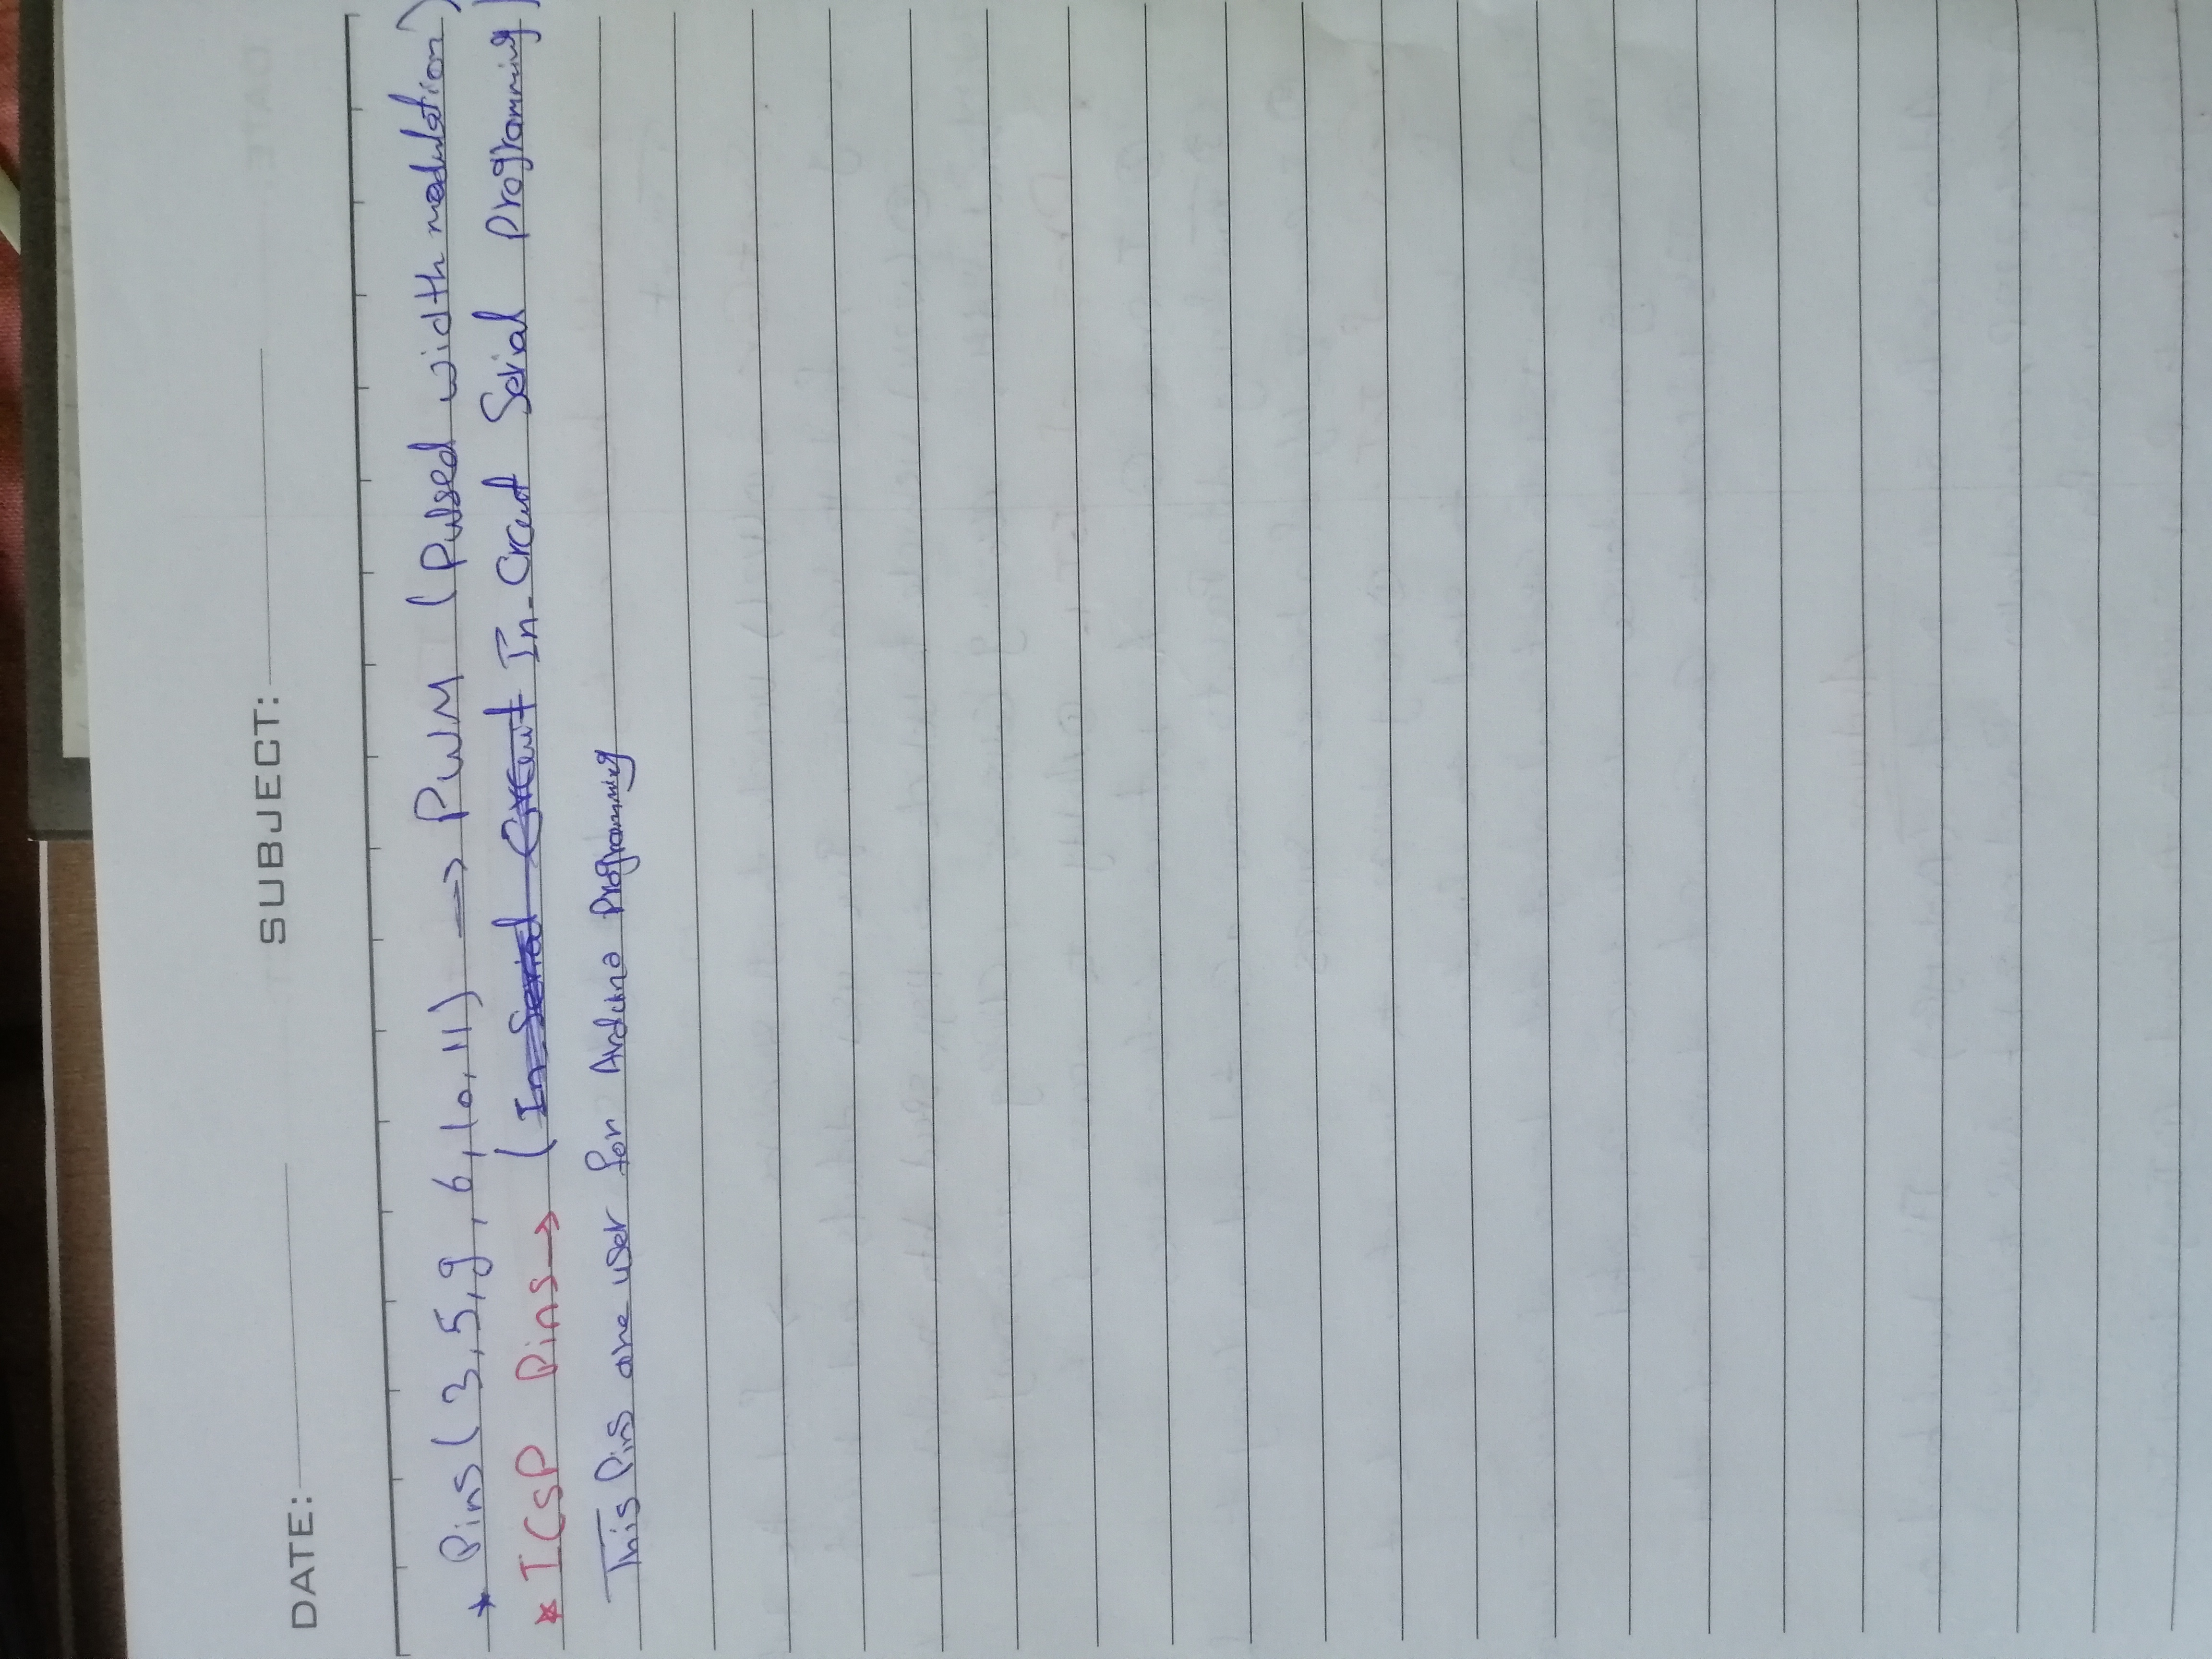 DATE: SUBJECT:
* Pins (3,5,9,6,10,11) → PWM (Pulsed width modulation)
* ICSP Pins → (In Serial Circuit In-Crcuit Serial Programming)
This Pins are user for Arduino Programming